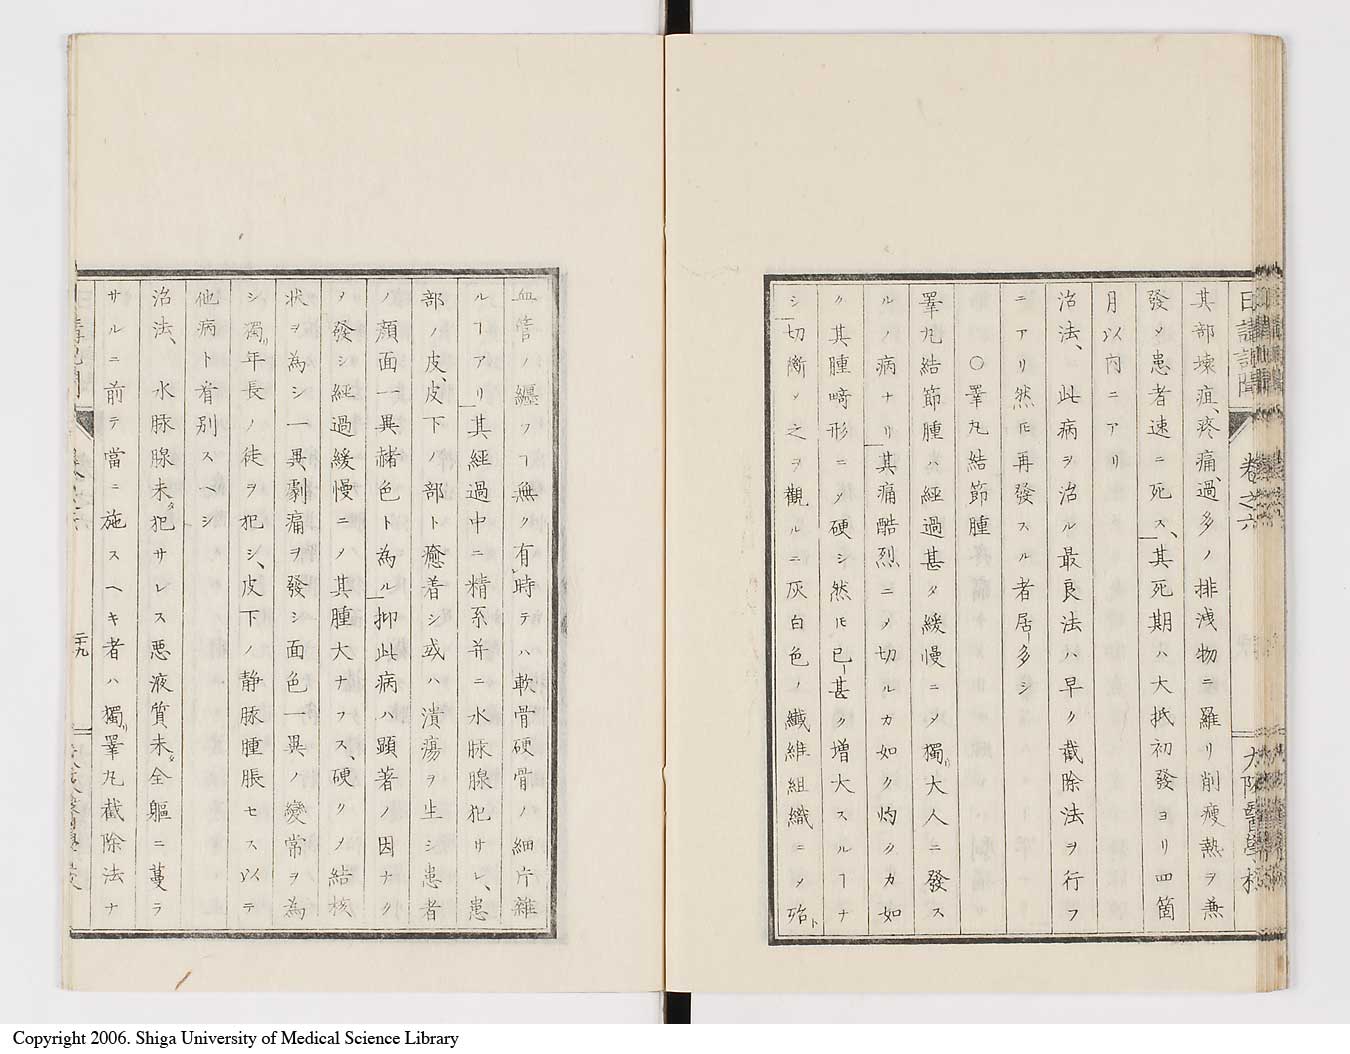 其部壊疽、疼痛、過多ノ排洩物ニ羅リ削瘦熱ヲ兼
發〆患者速ニ死ス、其死期ハ大抵初發ヨリ四箇
月以内ニアリ
治法、此病ヲ治ル最良法ハ早ク截除法ヲ行フ
ニアリ然𪜈再發スル者居多シ
〇睪丸結節腫
睪丸結節腫ハ經過甚タ緩慢ニ〆獨リ大人ニ發ス
ルノ病ナリ其痛酷烈ニ〆切ルカ如ク灼クカ如
ク其腫畸形ニ〆硬シ然𪜈已ニ甚ク増大スルヿナ
シ切断〆之ヲ觀ルニ灰白色ノ纖維組織ニ〆殆ト
日講記聞 卷之六 大阪醫學校
血管ノ纏フヿ無ク有時テハ軟骨硬骨ノ細片雜
ルヿアリ其經過中ニ精系并ニ水脉腺犯サレ、患
部ノ皮、皮下ノ部ト癒着シ或ハ潰瘍ヲ生シ患者
ノ顔面一異赭色ト為ル抑此病ハ顕著ノ因ナク
〆發シ経過緩慢ニ〆其腫大ナラス、硬ク〆結核
状ヲ為シ一異劇痛ヲ發シ面色一異ノ變常ヲ為
シ獨リ年長ノ徒ヲ犯シ、皮下ノ静脉腫脹セス以テ
他病ト看別スヘシ
治法、水脉腺未タ犯サレス悪液質未タ全軀ニ蔓ラ
サルニ前テ當ニ施スヘキ者ハ獨リ睪丸截除法ナ